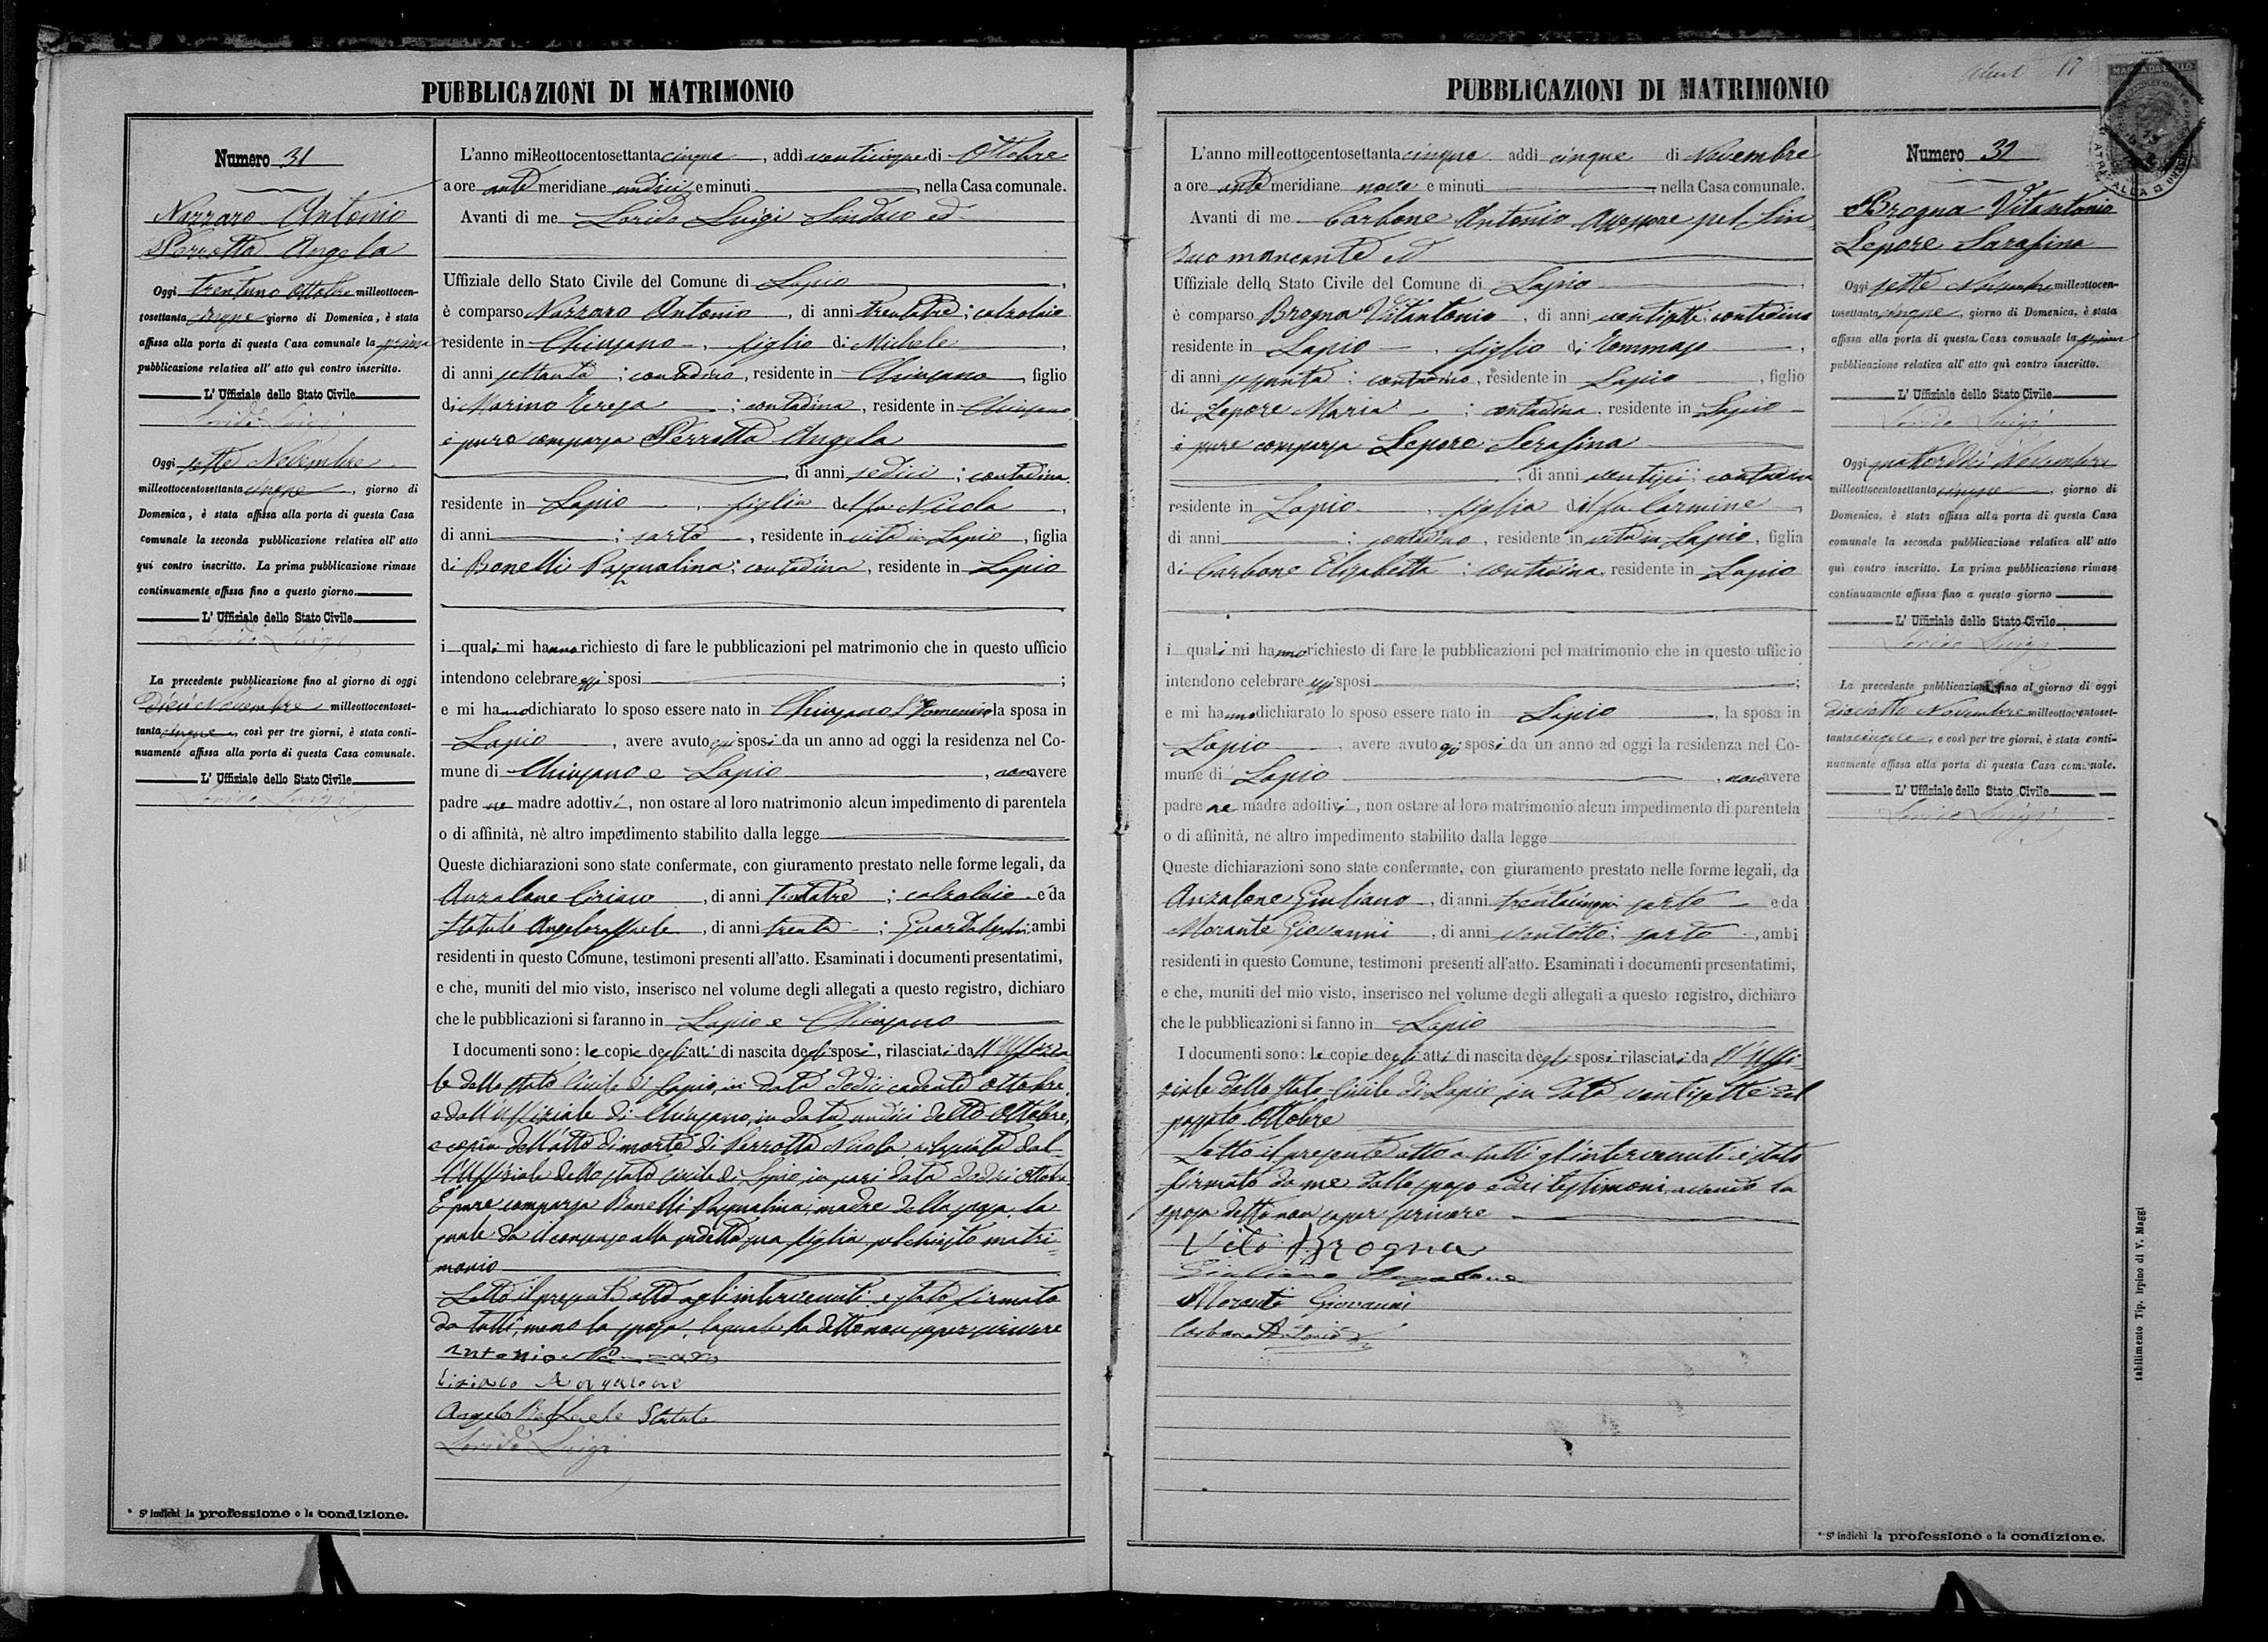 PUBBLICAZIONI DI MATRIMONIO
Numero 31
Nazzaro Antonio
Perrotta Angela
Oggi trentuno Ottobre milleottocen-
tosettanta cinque giorno di Domenica, è stata
affissa alla porta di questa Casa comunale la prima
pubblicazione relativa all' atto quì contro inscritto.
L' Uffiziale dello Stato Civile
Lorido Luigi
Oggi sette Novembre
milleottocentosettanta cinque, giorno di
Domenica, è stata affissa alla porta di questa Casa
comunale la seconda pubblicazione relativa all' atto
quì contro inscritto. La prima pubblicazione rimase
continuamente affissa fino a questo giorno.
L' Uffiziale dello Stato Civile
Lorido Luigi
La precedente pubblicazione fino al giorno di oggi
Dieci Novembre milleottocentoset-
tanta cinque, così per tre giorni, è stata conti-
nuamente affissa alla porta di questa Casa comunale.
L' Uffiziale dello Stato Civile
Lorido Luigi
* S' indichi la professione o la condizione.
L'anno milleottocentosettanta cinque, addì venticinque di Ottobre
a ore ante meridiane undici e minuti , nella Casa comunale.
Avanti di me Lorido Luigi Sindaco ed
Uffiziale dello Stato Civile del Comune di Lapio,
è comparso Nazzaro Antonio, di anni trentatre; calzolaio
residente in Chiusano, figlio di Michele,
di anni settanta; contadino, residente in Chiusano, figlio
di Marino Teresa; contadina, residente in Chiusano
è pure comparsa Perrotta Angela
di anni sedici; contadina
residente in Lapio, figlia del fu Nicola,
di anni ; sarto, residente in vita in Lapio, figlia
di Bonelli Pasqualina; contadina, residente in Lapio
i quali mi hanno richiesto di fare le pubblicazioni pel matrimonio che in questo ufficio
intendono celebrare essi sposi;
e mi hanno dichiarato lo sposo essere nato in Chiusano S. Domenico la sposa in
Lapio, avere avuto essi sposi da un anno ad oggi la residenza nel Co-
mune di Chiusano e Lapio, non avere
padre ne madre adottivi, non ostare al loro matrimonio alcun impedimento di parentela
o di affinità, nè altro impedimento stabilito dalla legge
Queste dichiarazioni sono state confermate, con giuramento prestato nelle forme legali, da
Anzalone Ciriaco, di anni trentatre; calzolaio e da
Statuto Angeloraffaele, di anni trenta; ambi
residenti in questo Comune, testimoni presenti all'atto. Esaminati i documenti presentatimi,
e che, muniti del mio visto, inserisco nel volume degli allegati a questo registro, dichiaro
che le pubblicazioni si faranno in Lapio e Chiusano
I documenti sono: le copie degli atti di nascita degli sposi, rilasciati dall'Uffizia-
le dello stato Civile di Lapio, in data dodici cadente Ottobre,
e dall'Uffiziale di Chiusano, in data undici detto Ottobre,
e copia dell'atto di morte di Perrotta Nicola rilasciata dal-
l'Uffiziale dello stato civile di Lapio in pari data dodici Ottobre.
È pure comparsa Bonelli Pasqualina, madre della sposa, la
quale dà il consenso alla sudetta sua figlia pel chiesto matri-
monio
Letto il presente atto agli intervenuti è stato firmato
da tutti, meno la sposa, la quale ha detto non saper scrivere
Antonio Nazzaro
Ciriaco Anzalone
Angelo Raffaele Statuto
Lorido Luigi
PUBBLICAZIONI DI MATRIMONIO
17
MARCA DA BOLLO
L'anno milleottocentosettanta cinque addì cinque di Novembre
a ore ante meridiane nove e minuti , nella Casa comunale.
Avanti di me Carbone Antonio Assessore pel Sin-
daco mancante ed
Uffiziale dello Stato Civile del Comune di Lapio,
è comparso Brogna Vitantonio, di anni ventisette; contadino
residente in Lapio, figlio di Tommaso,
di anni sessanta; contadino, residente in Lapio, figlio
di Lepore Maria; contadina, residente in Lapio
è pure comparsa Lepore Serafina
, di anni ventisei; contadina
residente in Lapio, figlia del fu Carmine,
di anni ; contadino, residente in vita in Lapio, figlia
di Carbone Elisabetta; contadina, residente in Lapio
i quali mi hanno richiesto di fare le pubblicazioni pel matrimonio che in questo ufficio
intendono celebrare essi sposi;
e mi hanno dichiarato lo sposo essere nato in Lapio, la sposa in
Lapio, avere avuto essi sposi da un anno ad oggi la residenza nel Co-
mune di Lapio, non avere
padre ne madre adottivi, non ostare al loro matrimonio alcun impedimento di parentela
o di affinità, nè altro impedimento stabilito dalla legge
Queste dichiarazioni sono state confermate, con giuramento prestato nelle forme legali, da
Anzalone Giuliano, di anni trentacinque sarto e da
Morante Giovanni, di anni ventotto; sarto, ambi
residenti in questo Comune, testimoni presenti all'atto. Esaminati i documenti presentatimi,
e che, muniti del mio visto, inserisco nel volume degli allegati a questo registro, dichiaro
che le pubblicazioni si fanno in Lapio
I documenti sono: le copie degli atti di nascita degli sposi rilasciati dall'Uffi-
ziale dello stato Civile di Lapio, in data ventisette del
passato Ottobre
Letto il presente atto a tutti gl'intervenuti è stato
firmato da me dallo sposo e dai testimoni, avendo la
sposa detto non saper scrivere
Vito Brogna
Giuliano Anzalone
Morante Giovanni
Carbone Antonio
Numero 32
Brogna Vitantonio
Lepore Sarafina
Oggi sette Novembre milleottocen-
tosettanta cinque, giorno di Domenica, è stata
affissa alla porta di questa Casa comunale la prima
pubblicazione relativa all' atto quì contro inscritto.
L' Uffiziale dello Stato Civile
Lorido Luigi
Oggi quattordici Novembre
milleottocentosettanta cinque, giorno di
Domenica, è stata affissa alla porta di questa Casa
comunale la seconda pubblicazione relativa all' atto
quì contro inscritto. La prima pubblicazione rimase
continuamente affissa fino a questo giorno
L' Uffiziale dello Stato Civile
Lorido Luigi
La precedente pubblicazione fino al giorno di oggi
diciotto Novembre milleottocentoset-
tanta cinque, e così per tre giorni, è stata conti-
nuamente affissa alla porta di questa Casa comunale.
L' Uffiziale dello Stato Civile
Lorido Luigi
* S' indichi la professione o la condizione.
tabilimento Tip. Irpino di V. Maggi